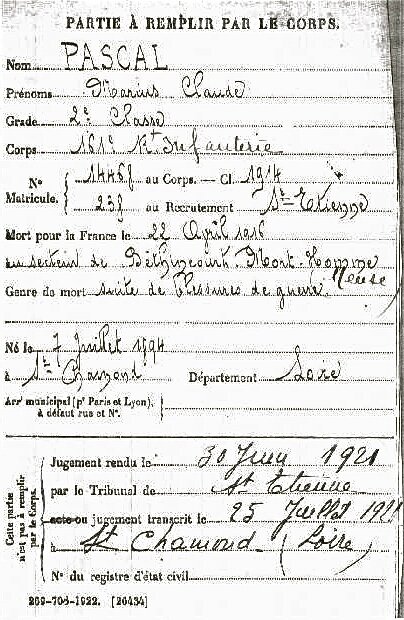 PARTIE À REMPLIR PAR LE CORPS.
Nom PASCAL
Prénoms Marius Claude
Grade 2e Classe
Corps 161e Rt Infanterie
No Matricule. 14468 au Corps. — Cl. 1914
238 au Recrutement St-Etienne
Mort pour la France le 22 Avril 1916
au secteur de Béthincourt Mort-Homme
Meuse
Genre de mort suite de blessures de guerre
Né le 7 Juillet 1894
à St Chamond Département Loire
Arrt municipal (pr Paris et Lyon),
à défaut rue et No.
Cette partie n'est pas à remplir par le Corps.
Jugement rendu le 30 Juin 1921
par le Tribunal de St Etienne
acte ou jugement transcrit le 25 Juillet 1921
à St Chamond (Loire)
No du registre d'état civil
269-708-1922. [26434]